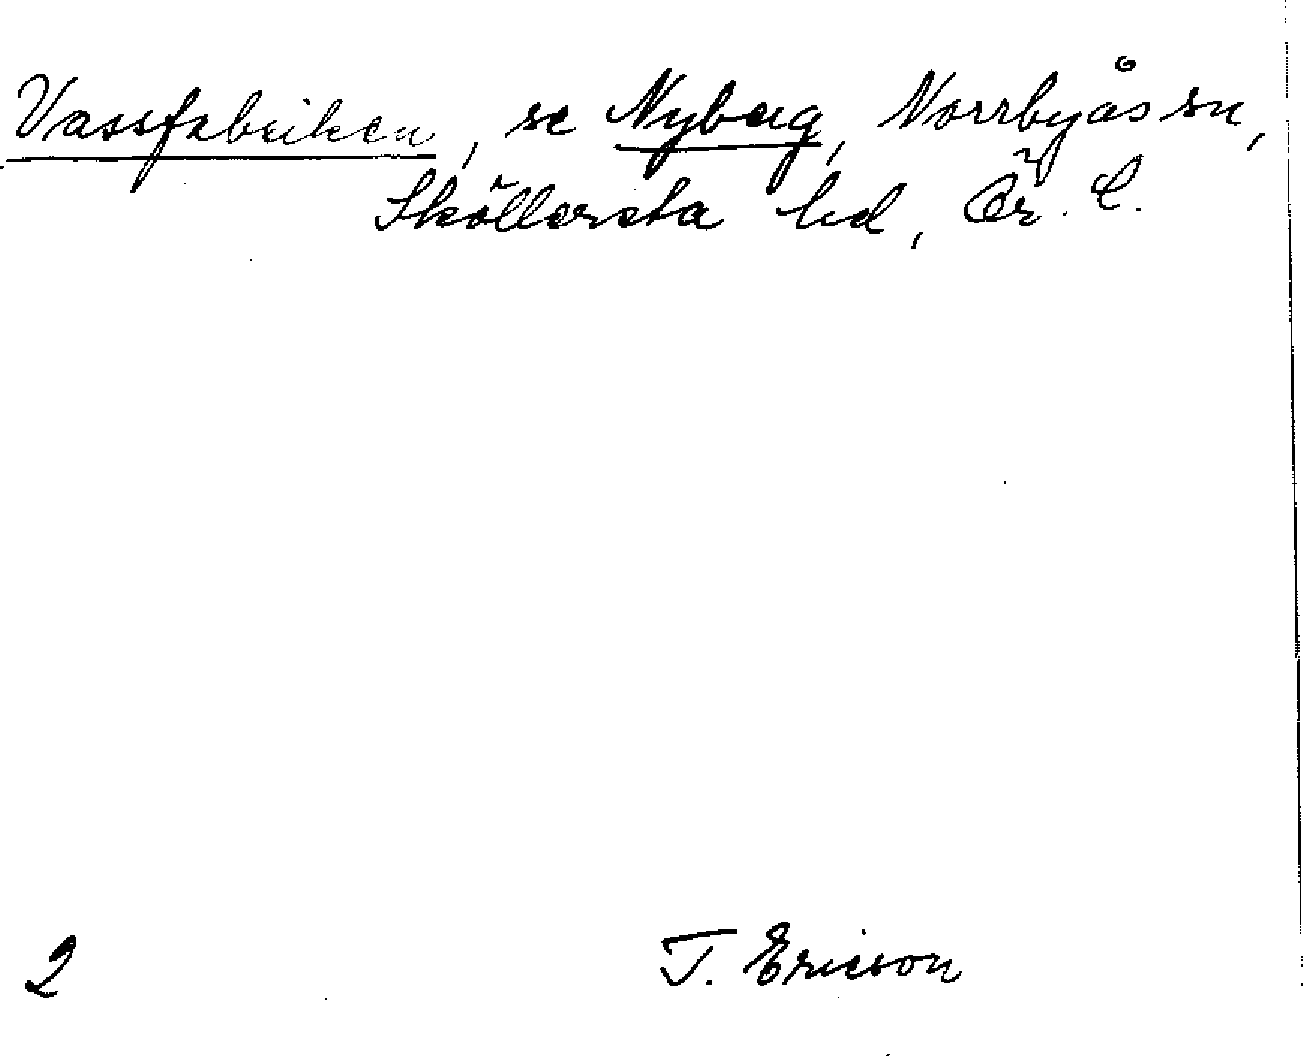 Vassfabriken, se Nyberg, Norrbyås sn,
Sköllersta hd, Ör. l.
2 T. Ericson